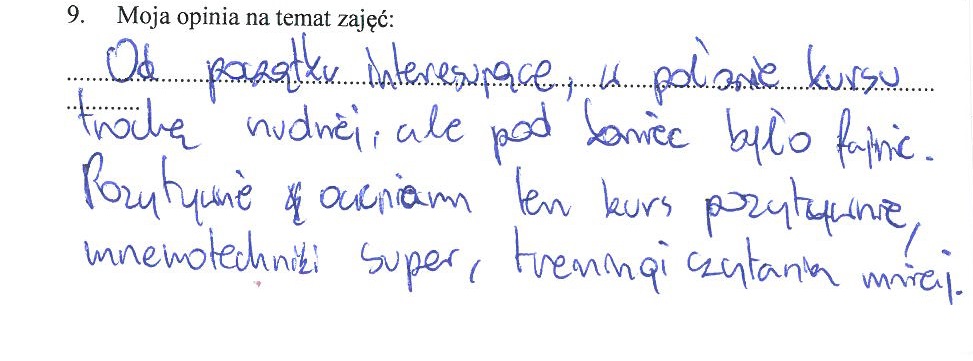 9. Moja opinia na temat zajęć:
Od początku interesujące, w połowie kursu
trochę nudniej, ale pod koniec było fajnie.
Pozytywnie oceniam ten kurs pozytywnie,
mnemotechniki super, treningi czytania mniej.